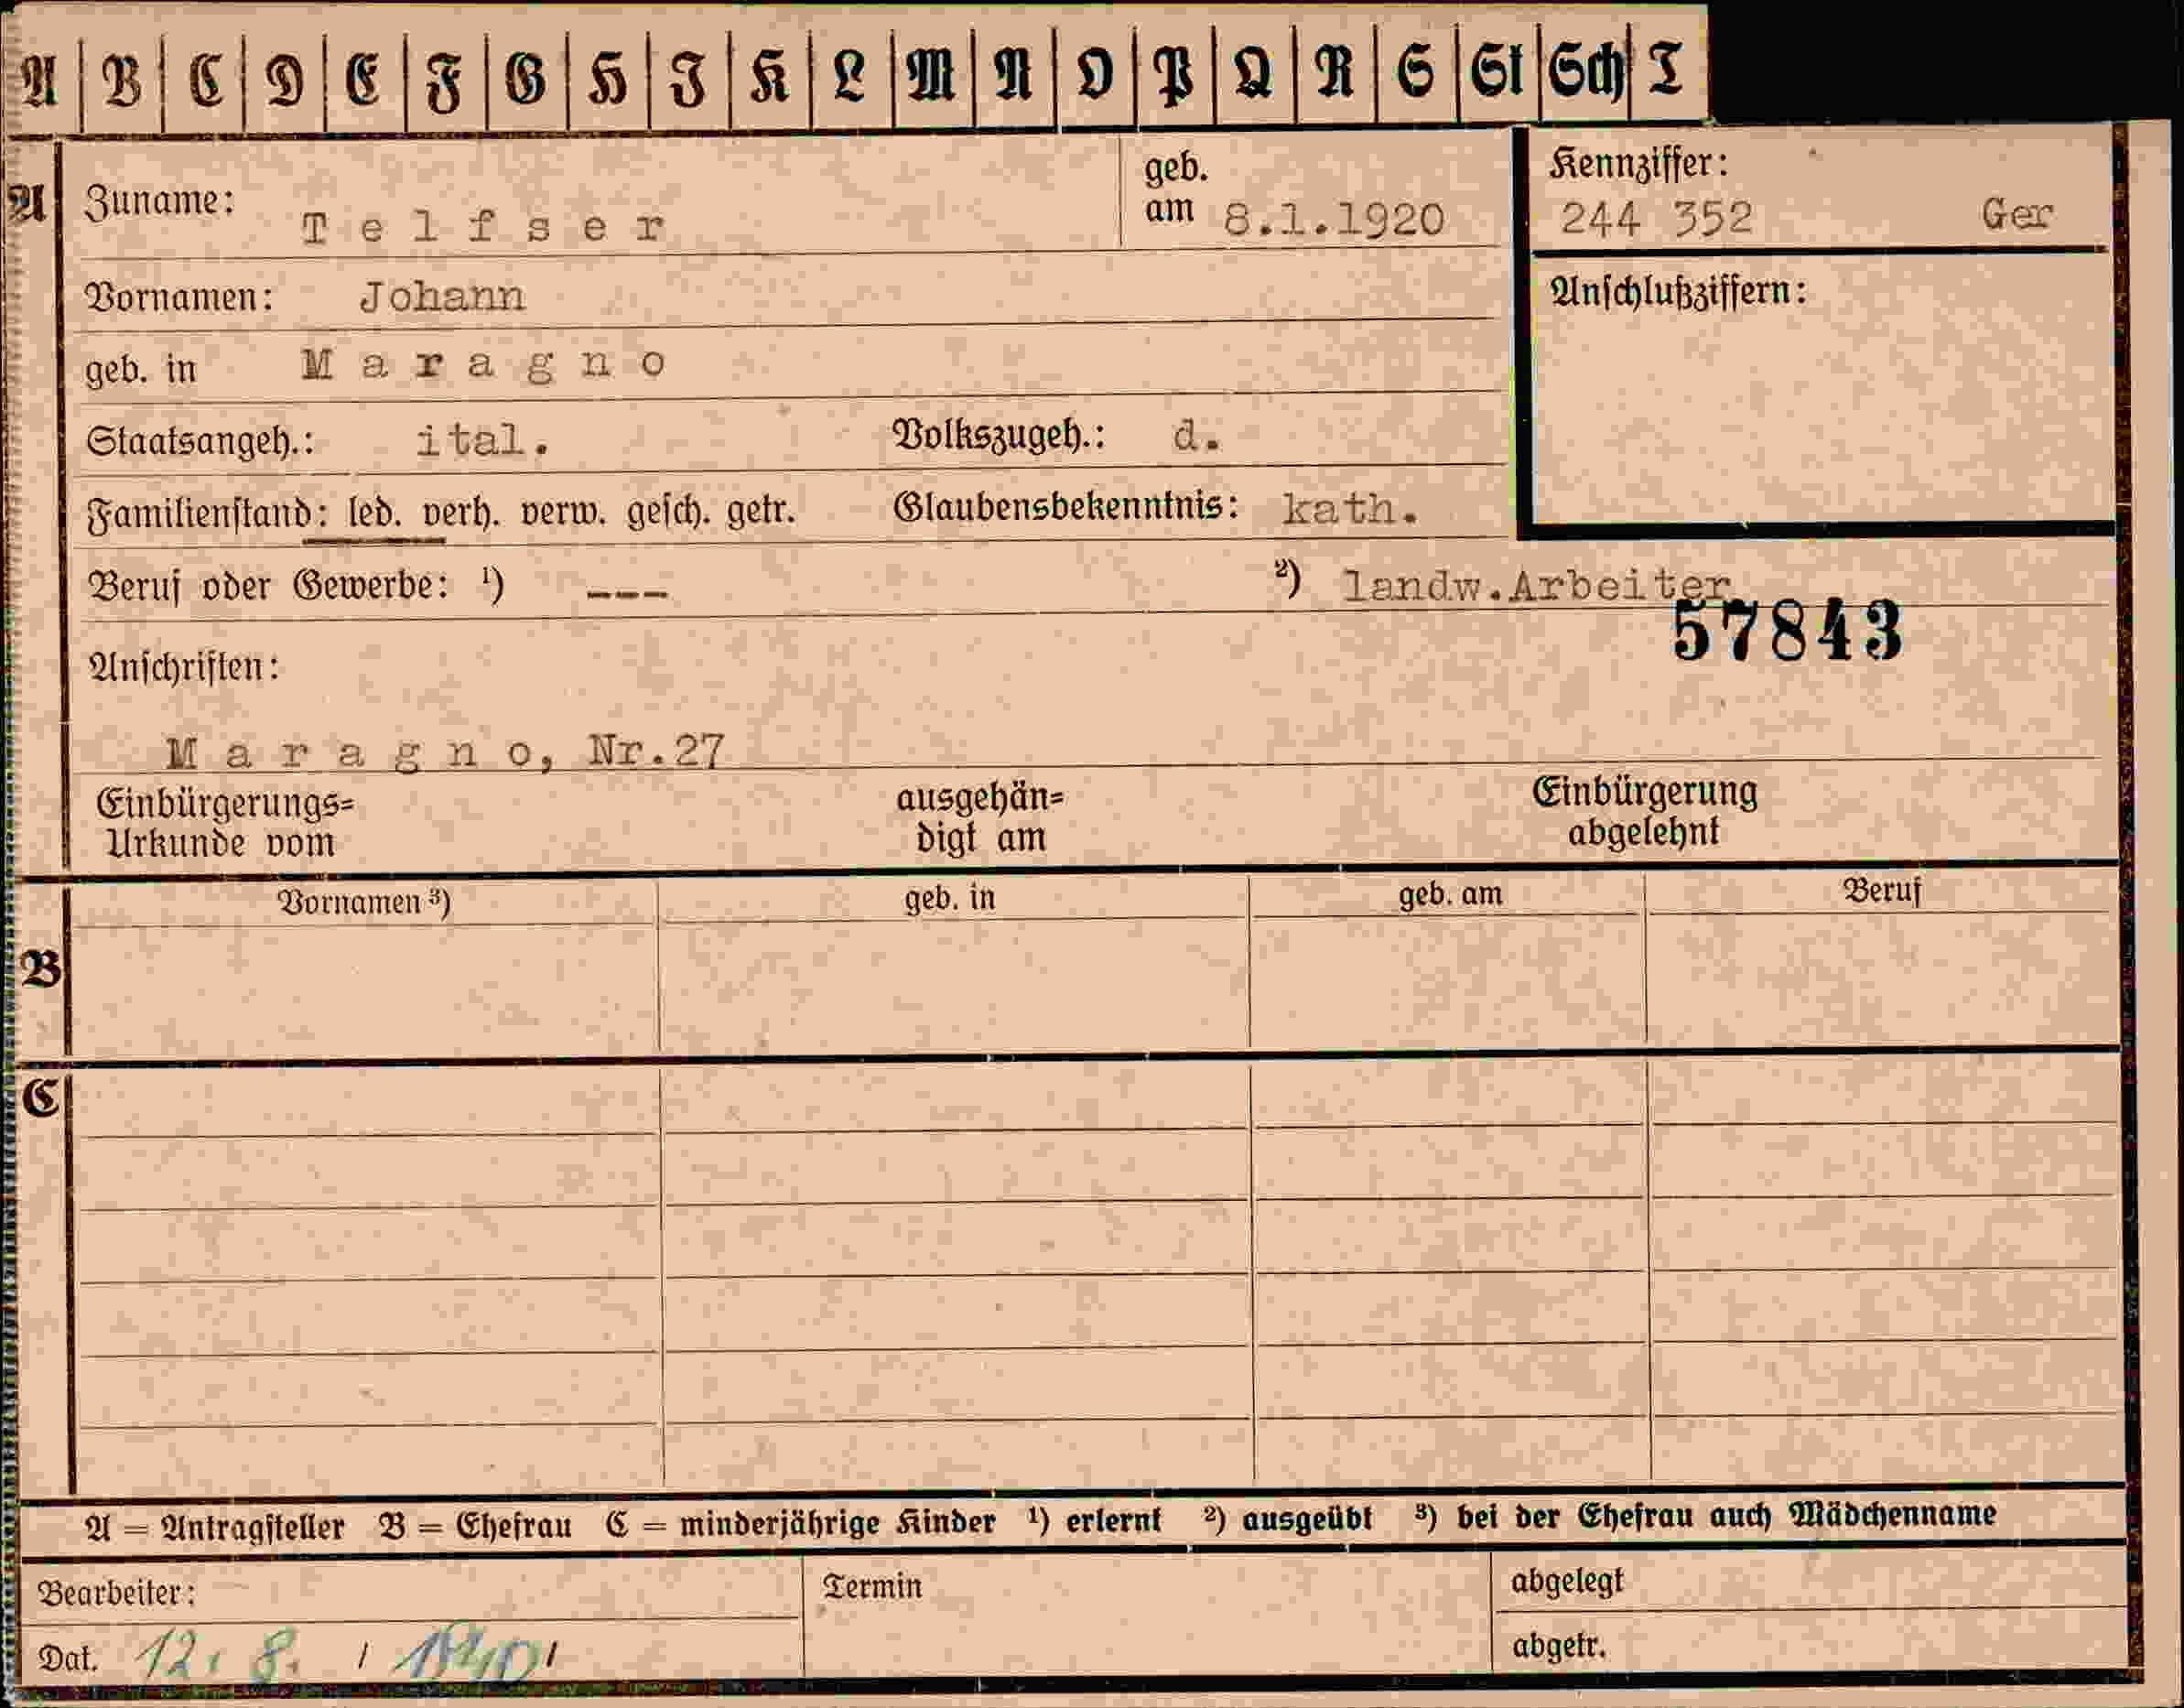 A B C D E F G H I K L M N O P Q R S St Sch T
A
Zuname: Telfser
geb. am 8.1.1920
Kennziffer:
244 352 Ger
Vornamen: Johann
Anschlußziffern:
geb. in Maragno
Staatsangeh.: ital. Volkszugeh.: d.
Familienstand: led. verh. verw. gesch. getr. Glaubensbekenntnis: kath.
Beruf oder Gewerbe: ¹) --- ²) landw.Arbeiter
57843
Anschriften:
Maragno, Nr.27
Einbürgerungs=
Urkunde vom
ausgehän=
digt am
Einbürgerung
abgelehnt
B
Vornamen ³) geb. in geb. am Beruf
C
A = Antragsteller B = Ehefrau C = minderjährige Kinder ¹) erlernt ²) ausgeübt ³) bei der Ehefrau auch Mädchenname
Bearbeiter: Termin abgelegt
Dat. 12. 8. / 1940 / abgetr.